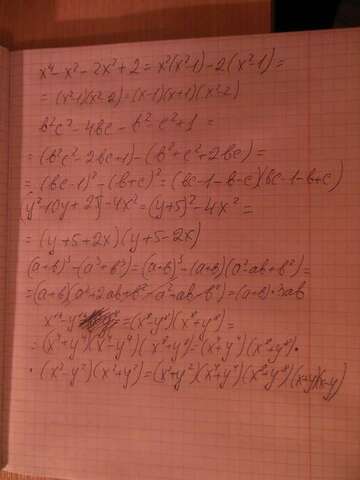 x⁴-x²-2x²+2=x²(x²-1)-2(x²-1)=
=(x²-1)(x²-2)=(x-1)(x+1)(x²-2)
b²c²-4bc-b²-c²+1=
=(b²c²-2bc+1)-(b²+c²+2bc)=
=(bc-1)²-(b+c)²=(bc-1-b-c)(bc-1+b+c)
(y²+10y+25)-4x²=(y+5)²-4x²=
=(y+5+2x)(y+5-2x)
(a+b)³-(a³+b³)=(a+b)³-(a+b)(a²-ab+b²)=
=(a+b)(a²+2ab+b²-a²+ab-b²)=(a+b)·3ab
x¹⁶-y¹⁶=(x⁸-y⁸)(x⁸+y⁸)=
=(x⁴+y⁴)(x⁴-y⁴)(x⁸+y⁸)=(x⁴+y⁴)(x⁸+y⁸)·
·(x²-y²)(x²+y²)=(x²+y²)(x⁴+y⁴)(x⁸+y⁸)(x+y)(x-y)